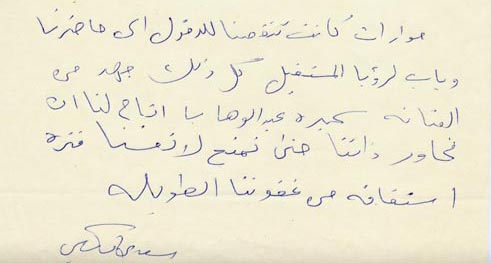 حوارات كانت تنقصنا للدخول الى حاضرنا
وباب لرؤيا المستقبل كل ذلك جهد من
الفنانه سميره عبد الوهاب اتاح لنا ان
نحاور ذاتنا حتى نمنح لانفسنا فترة
استفاقه من غفوتنا الطويله